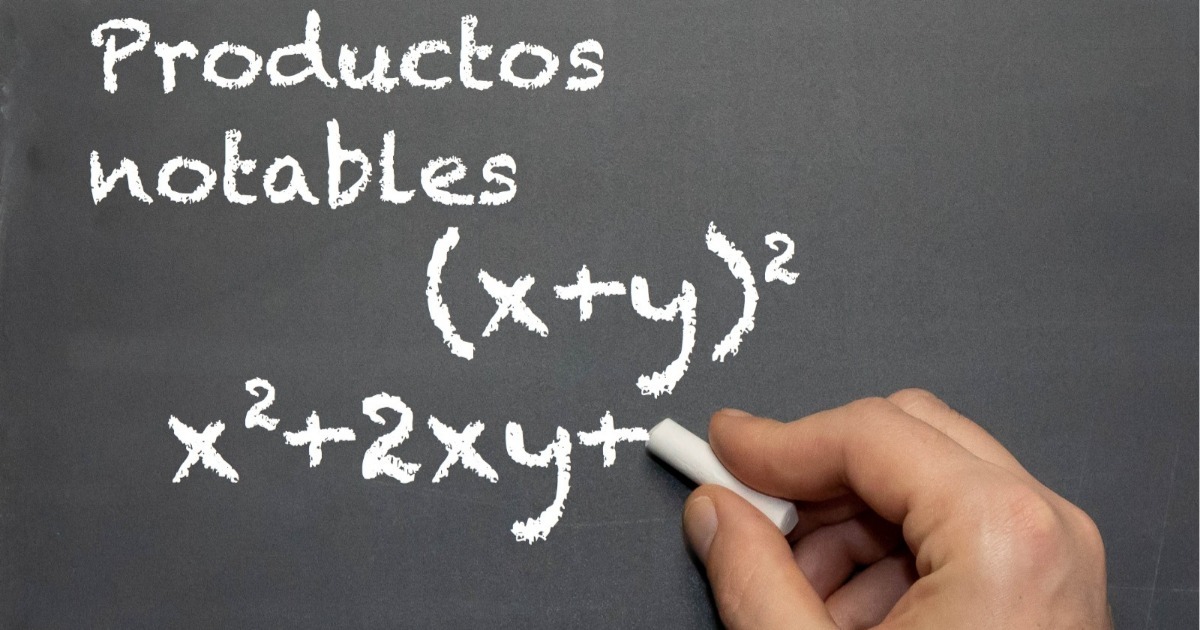 Productos
notables
(x+y)²
x²+2xy+